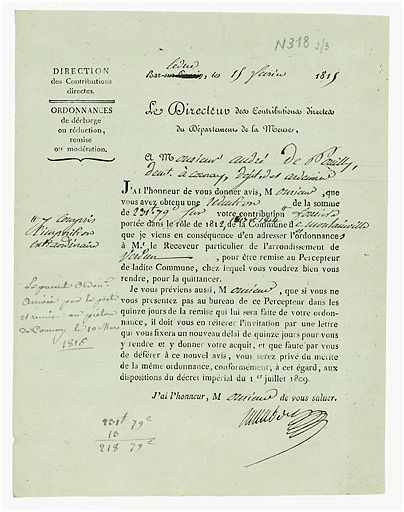 N318 3/3
DIRECTION
des Contributions
directes.
ORDONNANCES
de décharge
ou réduction,
remise
ou modération.
le 15 février 1815
Le Directeur des Contributions directes
du Département de la Meuse,
A Monsieur andré De Pouilly,
J'AI l'honneur de vous donner avis, Monsieur, que
vous avez obtenu une réduction de la somme
de 231f 79c sur votre contribution foncière
portée dans le rôle de 1812, de la Commune de
que je viens en conséquence d'en adresser l'ordonnances
à M.r le Receveur particulier de l'arrondissement de
Verdun, pour être remise au Percepteur
de ladite Commune, chez lequel vous voudrez bien vous
rendre, pour la quittancer.
Je vous préviens aussi, Monsieur, que si vous ne
vous présentez pas au bureau de ce Percepteur dans les
quinze jours de la remise qui lui sera faite de votre ordon-
nance, il doit vous en réitérer l'invitation par une lettre
qui vous fixera un nouveau délai de quinze jours pour vous
y rendre et y donner votre acquit, et que faute par vous
de déférer à ce nouvel avis, vous serez privé du mérite
de la même ordonnance, conformément, à cet égard, aux
dispositions du décret impérial du 1er juillet 1809.
J'ai l'honneur, Monsieur de vous saluer.
y compris
l'imposition
extraordinaire
Le présent Ordon.
231f 79c
13
218 79c